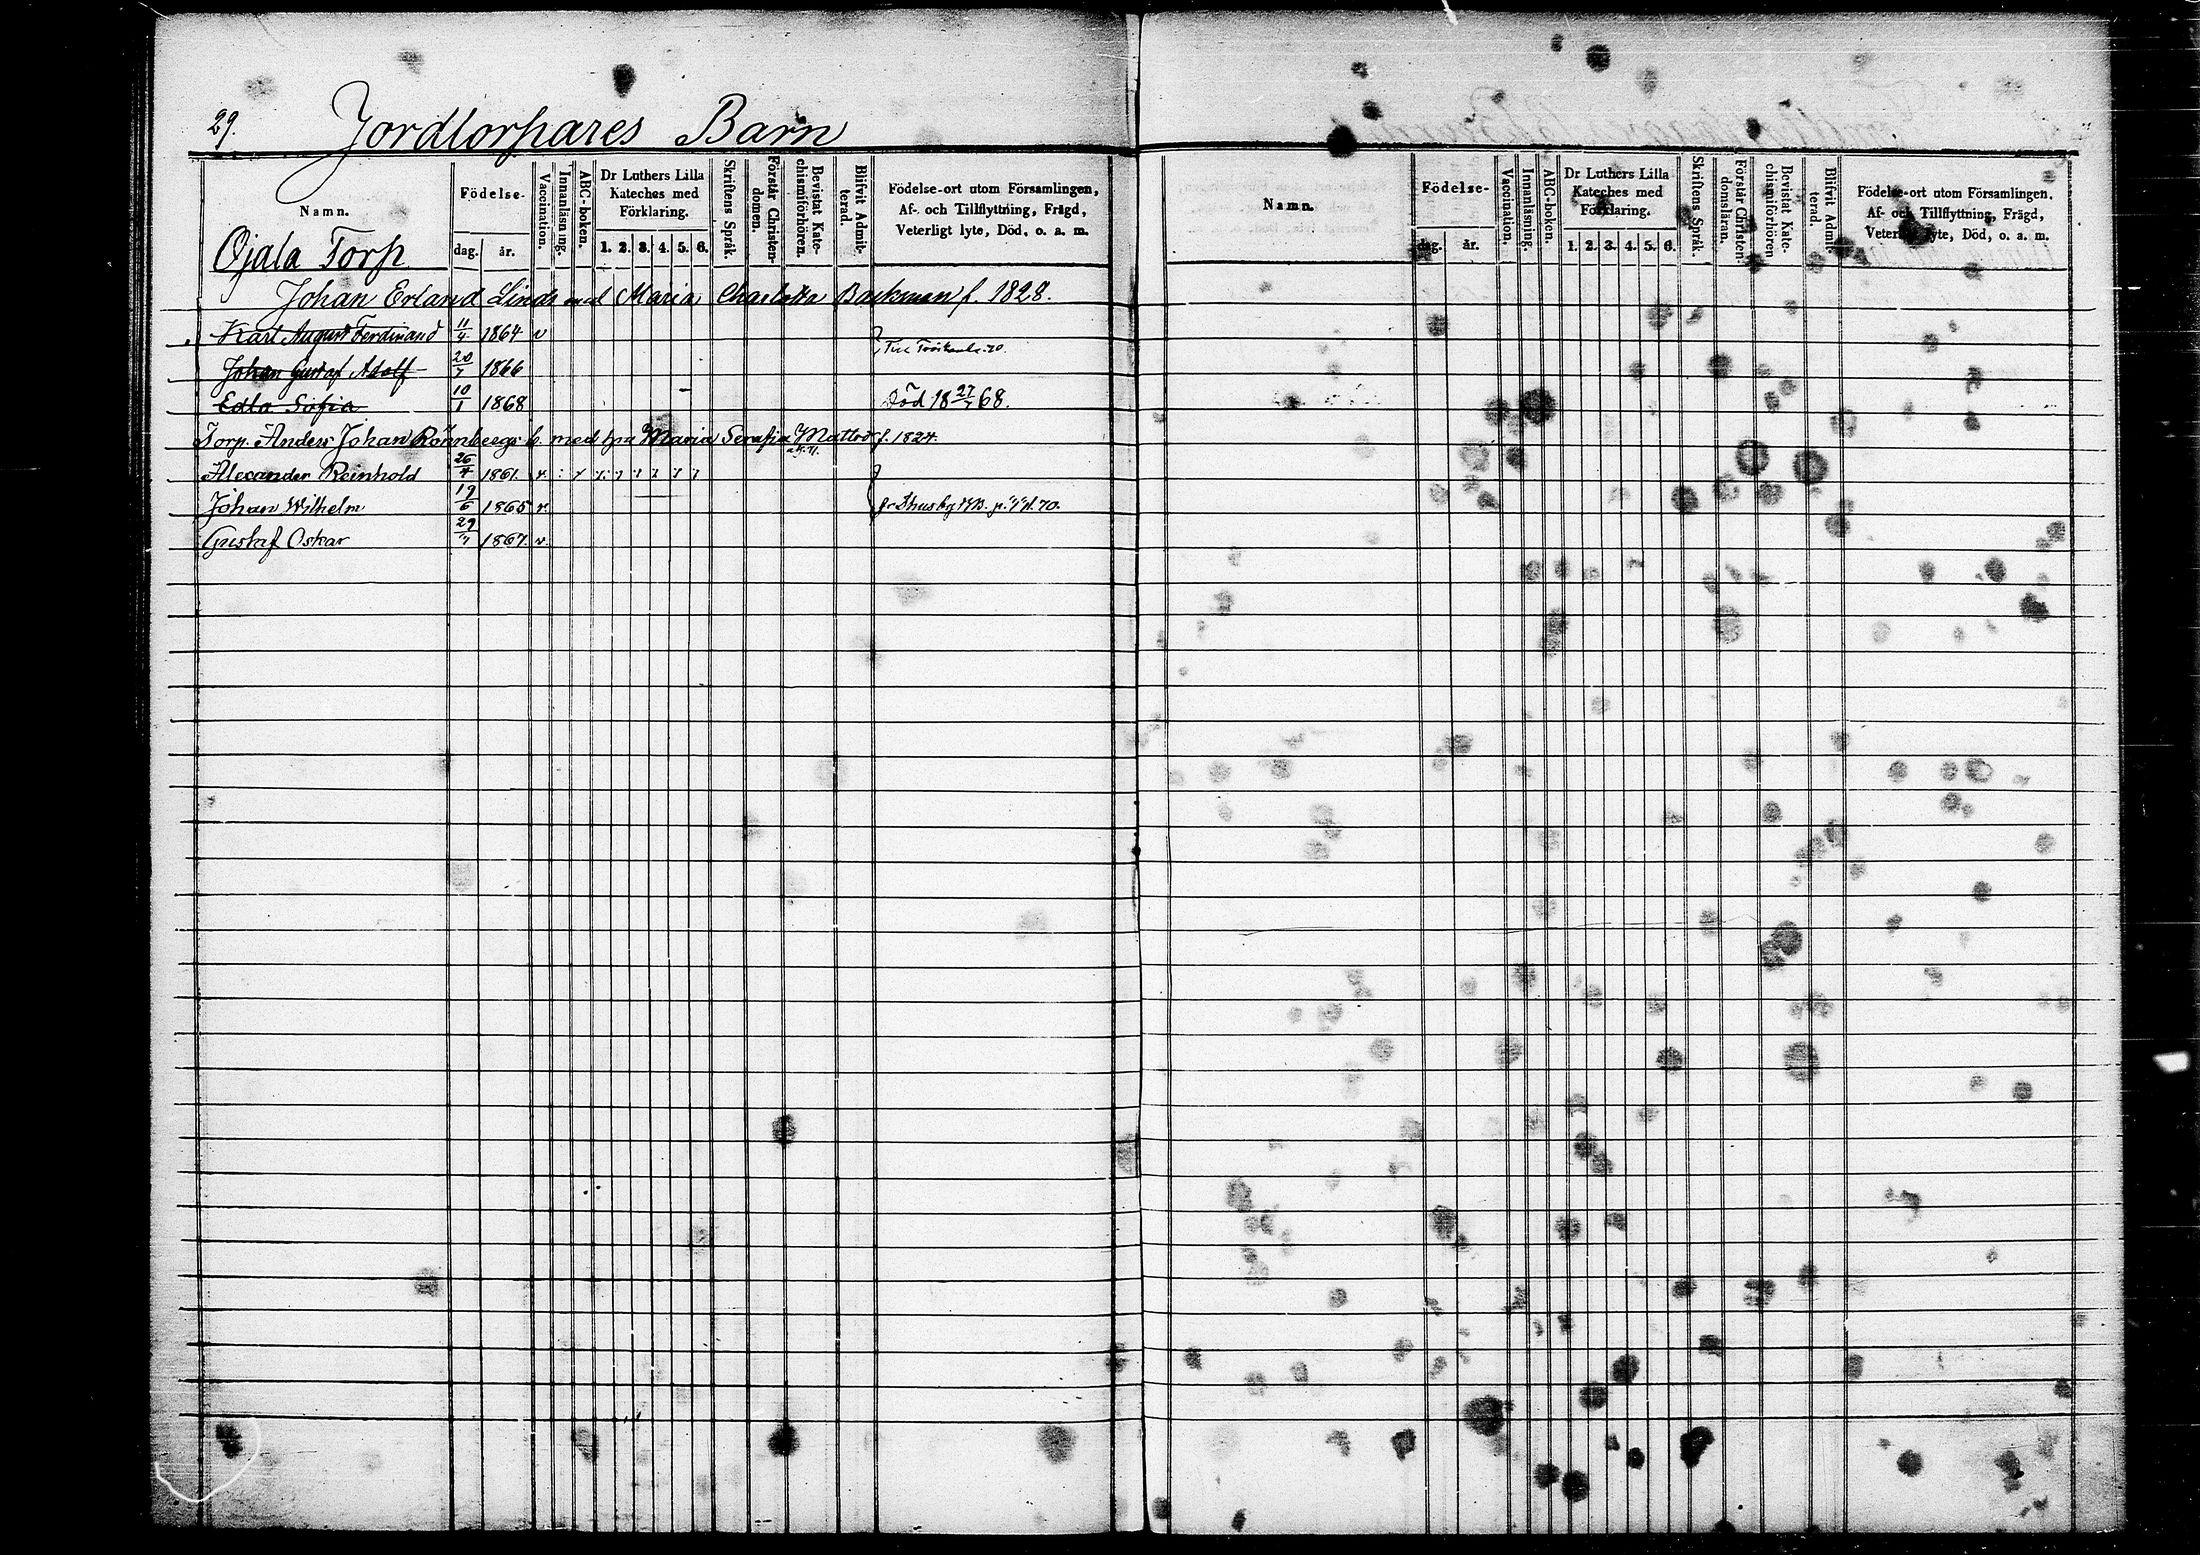 29. Jordtorpares Barn
Namn. Födelse- dag. år. Vaccination. Innanläsning. ABC-boken. Dr Luthers Lilla Kateches med Förklaring. 1. 2. 3. 4. 5. 6. Skriftens Språk. Förstår Christendomen. Bevistat Katechismiförhören. Blifvit Admitterad. Födelse-ort utom Församlingen, Af- och Tillflyttning, Frägd, Veterligt lyte, Död, o. a. m.
Ojala Torp
Johan Erland Linds med Maria Charlotta Backman f. 1828.
Karl August Ferdinand 11/4 1864 v
Johan Gustaf Adolf 20/7 1866
Edla Sofia 10/1 1868 Död 18 27/ 68.
Torp. Anders Johan Rönnbergs b. med hu Maria Serafia f. 1824.
Alexander Reinhold 26/4 1861. v.
Johan Wilhelm 19/6 1865 v.
Gustaf Oskar 29/7 1867. v.
Namn. Födelse- dag. år. Vaccination. Innanläsning. ABC-boken. Dr Luthers Lilla Kateches med Förklaring. 1. 2. 3. 4. 5. 6. Skriftens Språk. Förstår Christendomsläran. Bevistat Katechismiförhören Blifvit Admitterad. Födelse-ort utom Församlingen, Af- och Tillflyttning, Frägd, Veterligt lyte, Död, o. a. m.